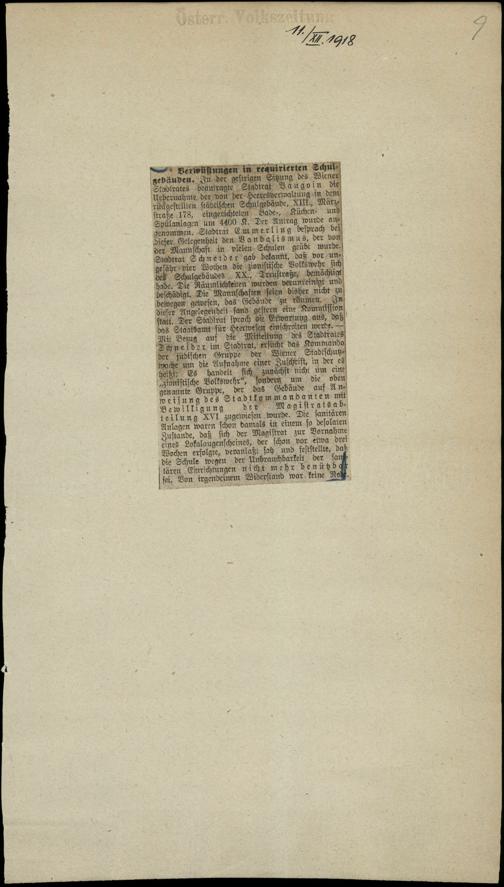 Österr. Volkszeitung
11./XII. 1918
9
Verwüstungen in requirierten Schul-
gebäuden. In der gestrigen Sitzung des Wiener
Stadtrates beantragte Stadtrat Vaugoin die
Uebernahme der von der Heeresverwaltung in dem
rückgestellten städtischen Schulgebäude, XIII., März-
straße 178, eingerichteten Bade-, Küchen- und
Spülanlagen um 4400 K. Der Antrag wurde an-
genommen. Stadtrat Emmerling besprach bei
dieser Gelegenheit den Vandalismus, der von
der Mannschaft in vielen Schulen geübt wurde.
Stadtrat Schneider gab bekannt, daß vor un-
gefähr vier Wochen die zionistische Volkswehr sich
des Schulgebäudes XX., Treustraße, bemächtigt
habe. Die Räumlichkeiten wurden verunreinigt und
beschädigt. Die Mannschaften seien bisher nicht zu
bewegen gewesen, das Gebäude zu räumen. In
dieser Angelegenheit fand gestern eine Kommission
statt. Der Stadtrat sprach die Erwartung aus, daß
das Staatsamt für Heerwesen einschreiten werde. —
Mit Bezug auf die Mitteilung des Stadtrates
Schneider im Stadtrat, ersucht das Kommando
der jüdischen Gruppe der Wiener Stadtschutz-
wache um die Aufnahme einer Zuschrift, in der es
heißt: Es handelt sich zunächst nicht um eine
„zionistische Volkswehr“, sondern um die oben
genannte Gruppe, der das Gebäude auf An-
weisung des Stadtkommandanten mit
Bewilligung der Magistratsab-
teilung XVI zugewiesen wurde. Die sanitären
Anlagen waren schon damals in einem so desolaten
Zustande, daß sich der Magistrat zur Vornahme
eines Lokalaugenscheines, der schon vor etwa drei
Wochen erfolgte, veranlaßt sah und feststellte, daß
die Schule wegen der Unbrauchbarkeit der sani
tären Einrichtungen nicht mehr benützbar
sei. Von irgendeinem Widerstand war keine Rede.